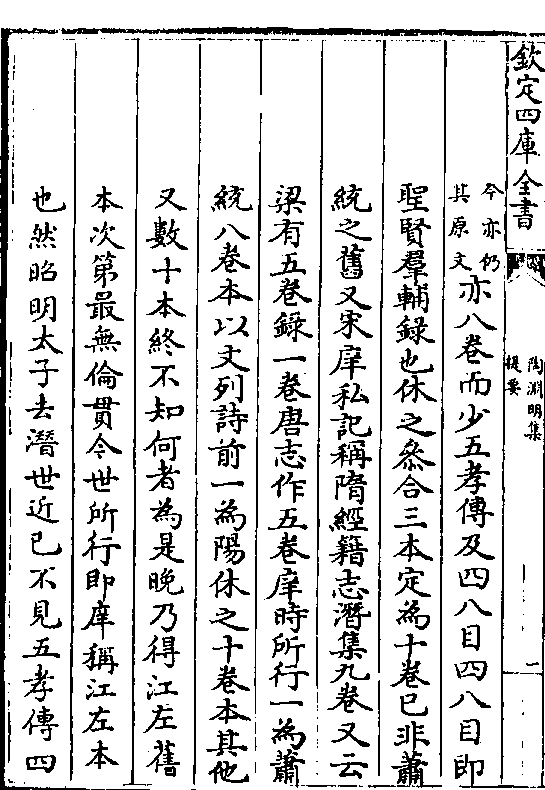 欽定四庫全書
陶淵明集
提要
二
今亦仍
其原文
亦八卷而少五孝傳及四八目四八目即
聖賢羣輔錄也休之叅合三本定為十卷已非蕭
統之舊又宋庠私記稱隋經籍志潛集九卷又云
梁有五卷錄一卷唐志作五卷庠時所行一為蕭
統八卷本以文列詩前一為陽休之十卷本其他
又數十本終不知何者為是晚乃得江左舊
本次第最無倫貫今世所行即庠稱江左本
也然昭明太子去潛世近已不見五孝傳四